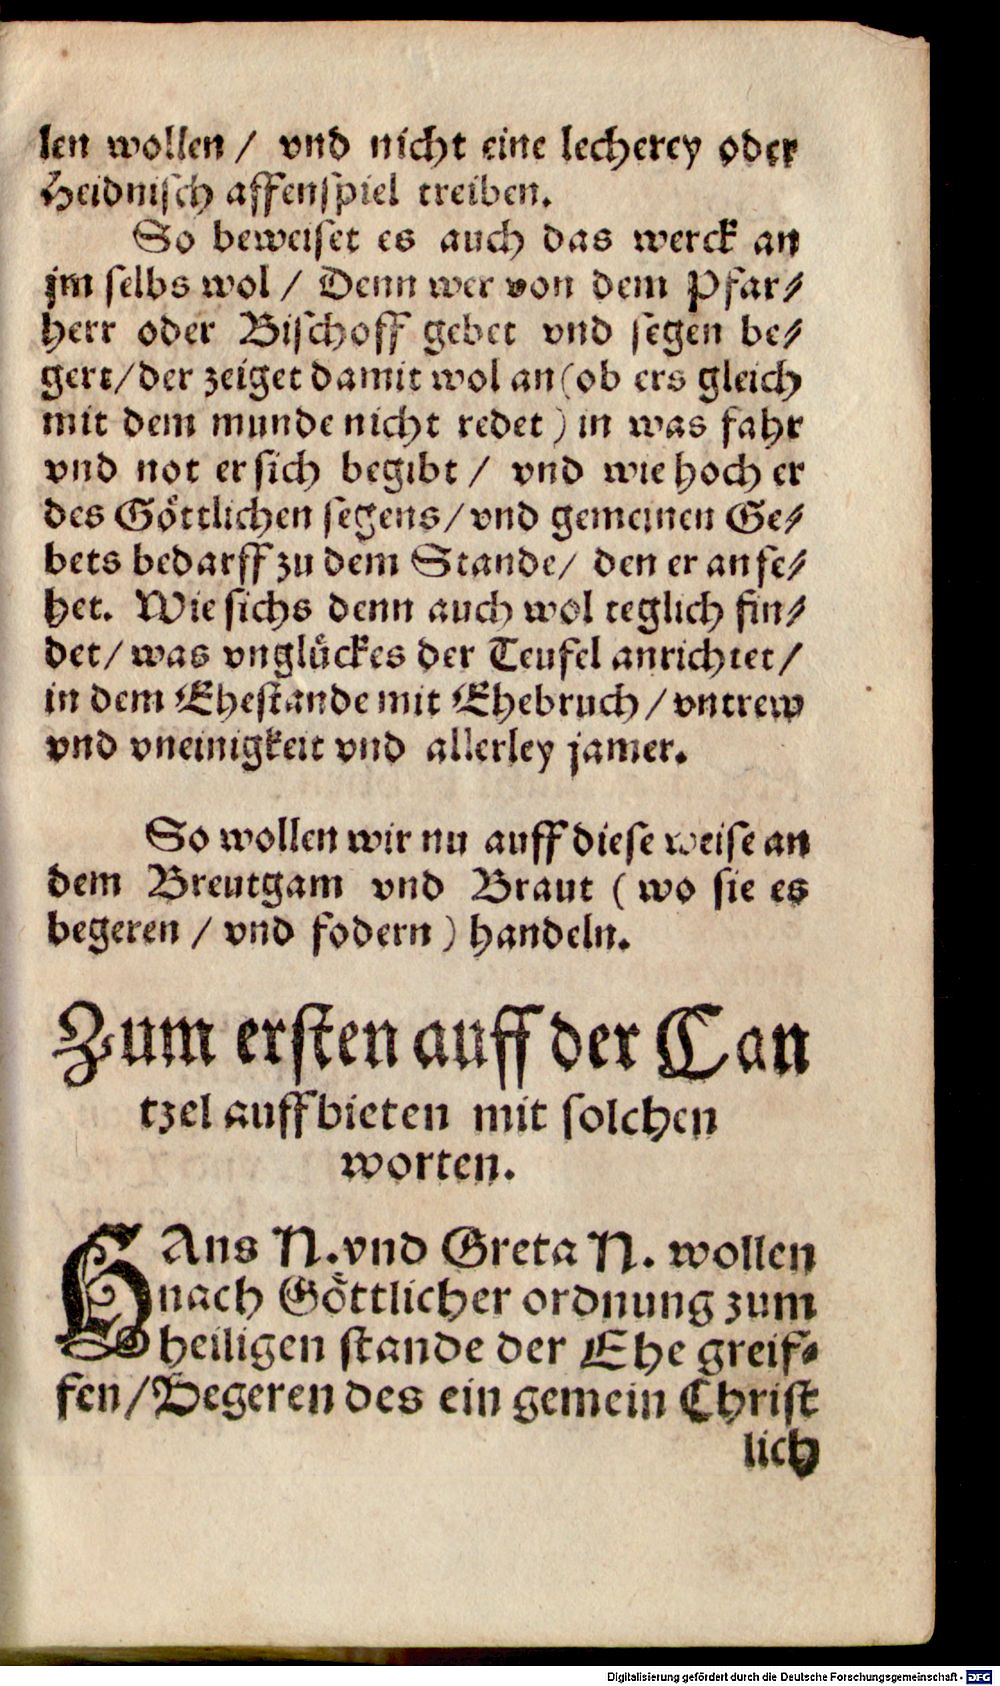 len wollen / vnd nicht eine lecherey oder
Heidnisch affenspiel treiben.
So beweiset es auch das werck an
jm selbs wol / Denn wer von dem Pfar⸗
herr oder Bischoff gebet vnd segen be⸗
gert/der zeiget damit wol an (ob ers gleich
mit dem munde nicht redet) in was fahr
vnd not er sich begibt / vnd wie hoch er
des Göttlichen segens/vnd gemeinen Ge⸗
bets bedarff zu dem Stande/ den er anfe⸗
het. Wie sichs denn auch wol teglich fin⸗
det/ was vnglückes der Teufel anrichtet/
in dem Ehestande mit Ehebruch / vntrew
vnd vneinigkeit vnd allerley jamer.
So wollen wir nu auff diese weise an
dem Breutgam vnd Braut ( wo sie es
begeren / vnd fodern ) handeln.
Zum ersten auff der Can
tzel auffbieten mit solchen
worten.
HAns N. vnd Greta N. wollen
nach Göttlicher ordnung zum
heiligen stande der Ehe greif⸗
fen/Begeren des ein gemein Christ
lich
Digitalisierung gefördert durch die Deutsche Forschungsgemeinschaft - DFG